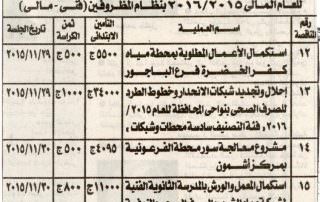 للعام المالى ٢٠١٥/٢٠١٦ بنظام المظروفين (فنى - مالى)
رقم المناقصة
اسم العملية
التأمين الابتدائى
ثمن الكراسة
تاريخ الجلسة
١٢
استكمال الأعمال المطلوبة بمحطة مياه
كفر الخضرة فرع الباجور
٥٥٠٠ج
٥٠٠ج
٢٠١٥/١١/٢٩
١٣
إحلال وتجديد شبكات الانحدار وخطوط الطرد
للصرف الصحى بنواحى المحافظة للعام ٢٠١٥/
٢٠١٦، فئة التصنيف سادسة محطات وشبكات،
٣٤٠٠٠ج
١٠٠٠ج
٢٠١٥/١١/٢٩
١٤
مشروع معالجة سور محطة الفرعونية
بمركز أشمون
٤٠٩٥ج
٥٠٠ج
٢٠١٥/١١/٣٠
١٥
استكمال المعمل والورش بالمدرسة الثانوية الفنية
١١٠٠٠ج
٨٠٠ج
٢٠١٥/١١/٣٠